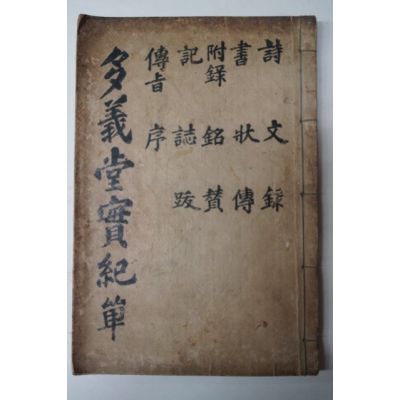 詩 文 錄
書 狀 傳
附錄 銘 贊
記 誌 跋
傳旨 序
多義堂實紀 單